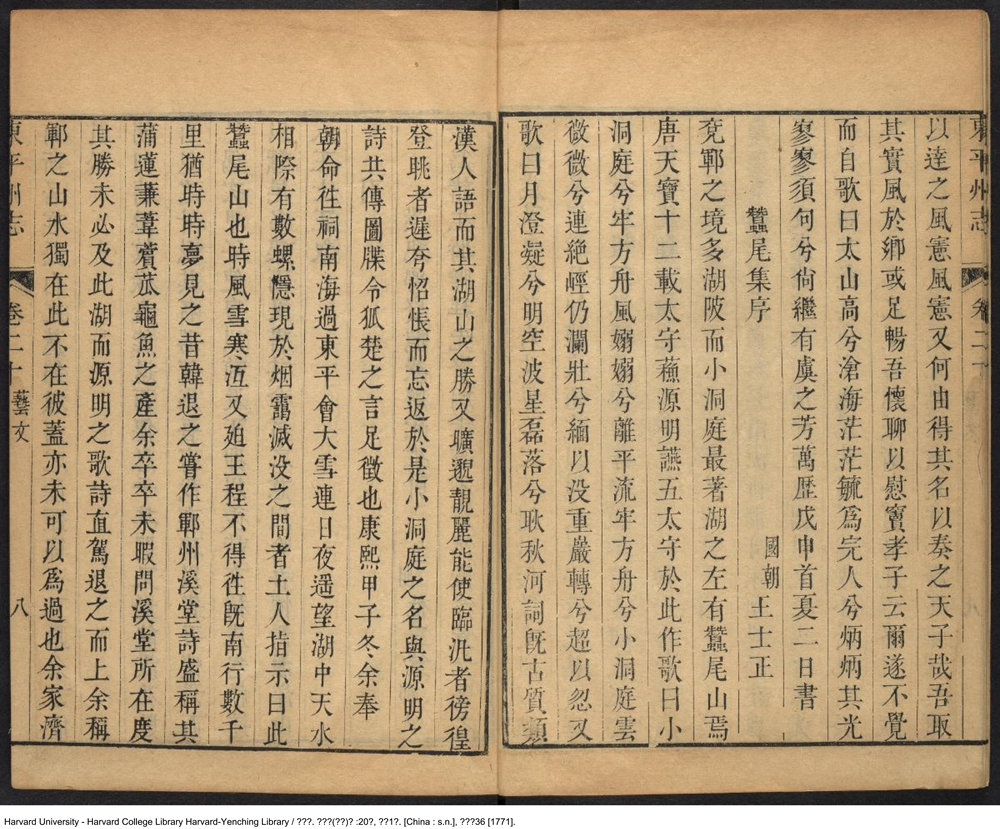 東平州志 卷二下
以達之風憲風憲又何由得其名以奏之天子哉吾取
其實風於鄉或足暢吾懷聊以慰寶孝子云爾遂不覺
而自歌曰太山高兮滄海茫茫毓爲完人兮炳炳其光
寥寥須句兮尙繼有虞之芳萬歷戊申首夏二日書
蠶尾集序
國朝王士正
兗鄆之境多湖陂而小洞庭最著湖之左有蠶尾山焉
唐天寶十二載太守蘓源明讌五太守於此作歌曰小
洞庭兮牢方舟風嫋嫋兮離平流牢方舟兮小洞庭雲
微微兮連絶陘仍瀾壯兮緬以没重巖轉兮超以忽又
歌曰月澄凝兮明空波星磊落兮耿秋河詞旣古質類
漢人語而其湖山之勝又曠邈靚麗能使臨汎者徬徨
登眺者遲夸怊悵而忘返於是小洞庭之名與源明之
詩共傳圖牒令狐楚之言足徵也康熙甲子冬余奉
朝命徃祠南海過東平會大雪連日夜遥望湖中天水
相際有數螺隱現於烟靄滅没之間者土人指示曰此
蠶尾山也時風雪寒沍又廹王程不得徃旣南行數千
里猶時時夢見之昔韓退之嘗作鄆州溪堂詩盛稱其
蒲蓮蒹葦薲苽龜魚之產余卒卒未暇問溪堂所在度
其勝未必及此湖而源明之歌詩直駕退之而上余稱
鄆之山水獨在此不在彼蓋亦未可以爲過也余家濟
東平州志 卷二十 藝文 八
Harvard University - Harvard College Library Harvard-Yenching Library / ???. ???(??)? :20?, ??1?. [China : s.n.], ???36 [1771].